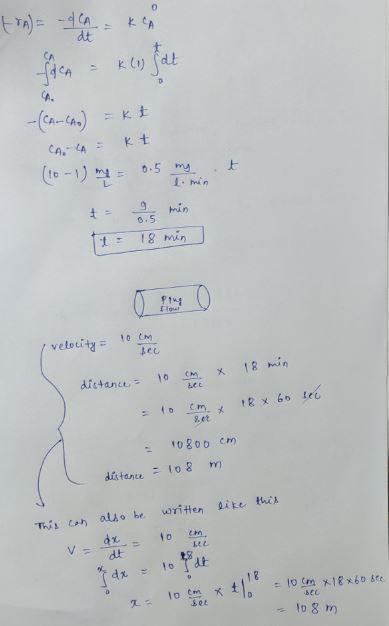 (-rA) = -dCA/dt = K CA^0
-∫_{CA0}^{CA} dCA = K(1) ∫_0^t dt
-(CA-CA0) = K t
CA0-CA = K t
(10-1) mg/L = 0.5 mg/l.min . t
t = 9/0.5 min
t = 18 min
Plug
flow
velocity = 10 cm/sec
distance = 10 cm/sec × 18 min
= 10 cm/sec × 18 × 60 sec
= 10800 cm
distance = 108 m
This can also be written like this
V = dx/dt = 10 cm/sec
∫_0^x dx = 10 ∫_0^18 dt
x = 10 cm/sec × t|_0^18 = 10 cm/sec × 18×60 sec
= 108 m